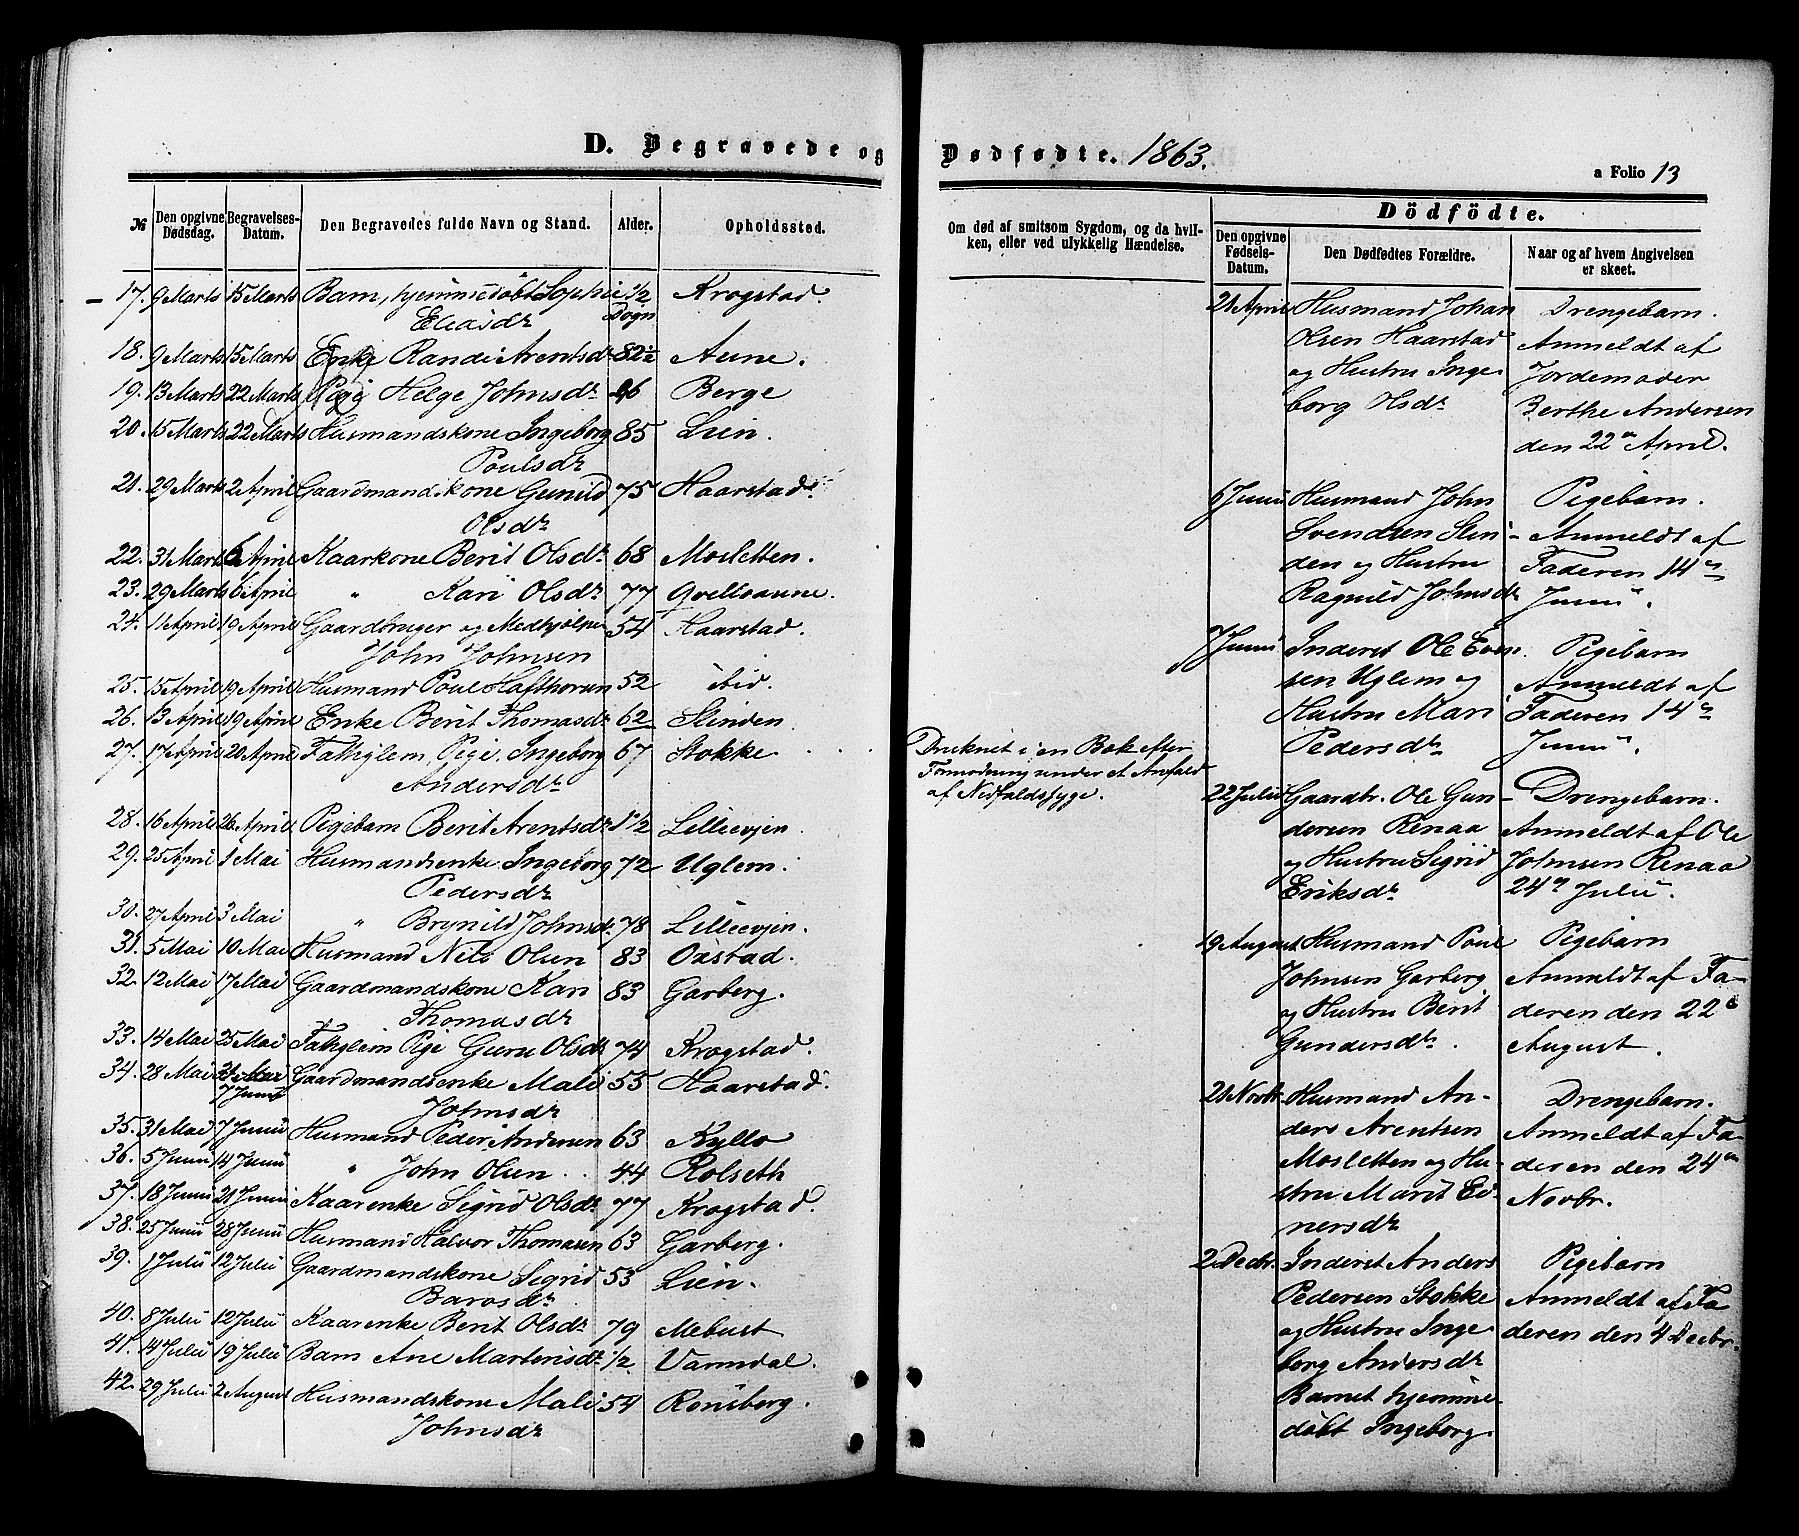 D. Begravede og Dødfødte. 1863.
a Folio 13
№ Den opgivne Dødsdag. Begravelses-Datum. Den Begravedes fulde Navn og Stand. Alder. Opholdssted.
17. 9 Marts 15 Marts Barn, hjemmedøbt Sophie 1/2 Krogstad.
Eliasdr Døgn
18. 9 Marts 15 Marts Enke Randi Arentsdr 82 1/2 Aune.
19. 13 Marts 22 Marts Pige Helge Johnsdr 26 Berge
20. 15 Marts 22 Marts Husmandskone Ingeborg 85 Lien.
Poulsdr
21. 29 Marts 2 April Gaardmandskone Gunild 75 Haarstad.
Olsdr
22. 31 Marts 6 April Kaarkone Berit Olsdr 68 Mosletten.
23. 29 Marts 6 April " Kari Olsdr 77 Qvelloaune.
24. 11 April 19 April Gaardbruger og Medhjelper 54 Haarstad.
John Johnsen
25. 15 April 19 April Husmand Poul Hafthorsen 52 ibid.
26. 13 April 19 April Enke Berit Thomasdr 62 Slinden
27. 17 April 20 April Fattiglem, Pige Ingeborg 67 Stokke
Andersdr
28. 16 April 26 April Pigebarn Berit Arentsdr 1 1/2 Lillevjen.
29. 25 April 1 Mai Husmandsenke Ingeborg 72 Uglem.
Pedersdr
30. 27 April 3 Mai " Brynild Johnsdr 78 Lillevjen.
31. 5 Mai 10 Mai Husmand Nils Olsen 83 Oxstad.
32. 12 Mai 17 Mai Gaardmandskone Kari 83 Garberg.
Thomasdr
33. 14 Mai 25 Mai Fattiglem Pige Guru Olsdr 74 Krogstad.
34. 28 Mai 31 Mai Gaardmandsenke Mali 55 Haarstad.
7 Junii Johnsdr
35. 31 Mai 7 Junii Husmand Peder Andersen 63 Kyllo
36. 5 Junii 14 Junii " John Olsen 44 Rolseth
37. 18 Junii 21 Junii Kaarenke Sigrid Olsdr 77 Krogstad.
38. 25 Junii 28 Junii Husmand Halvor Thomasen 63 Garberg.
39. 1 Julii 12 Julii Gaardmandskone Sigrid 53 Lien.
Barosdr
40. 8 Julii 12 Julii Kaarenke Berit Olsdr 79 Mebust
41. 14 Julii 19 Julii Barn Ane Martensdr 1/2 Varmdal.
42. 29 Julii 2 August Husmandskone Mali 54 Rønsberg.
Johnsdr
Om død af smitsom Sygdom, og da hvil-
ken, eller ved ulykkelig Hændelse.
Druknet i en Bæk efter
Formodning under et Anfald
af Nedfaldssyge.
Dödfödte.
Den opgivne Fødsels-Datum. Den Dødfødtes Forældre. Naar og af hvem Angivelsen er skeet.
21 April Husmand Johan Drengebarn.
Olsen Haarstad Anmeldt af
og Hustru Inge Jordemoder
borg Olsdr Berthe Andersen
den 22de April.
6 Junii Husmand John Pigebarn.
Svendsen Slin- Anmeldt af
den og Hustru Faderen 14de
Ragnild Johnsdr Junii.
7 Junii Inderst Ole Even Pigebarn
sen Uglem og Anmeldt af
Hustru Mari Faderen 14de
Pedersdr Junii.
22 Julii Gaardbr. Ole Gun- Drengebarn.
dersen Renaa Anmeldt af Ole
og Hustru Sigrid Johnsen Renaa
Eriksdr 24de Julii.
19 August Husmand Poul Pigebarn
Johnsen Garberg Anmeldt af Fa-
og Hustru Berit deren den 22de
Gundersdr. August.
21 Novbr. Husmand An- Drengebarn.
ders Arentsen Anmeldt af Fa-
Mosletten og Hu- deren den 24de
stru Marit Ei- Novbr.
nersdr
2 Decbr. Inderst Anders Pigebarn
Pedersen Stokke Anmeldt af Fa
og Hustru Inge deren den 4 Decbr.
borg Andersdr
Barnet hjemme
døbt Ingeborg.